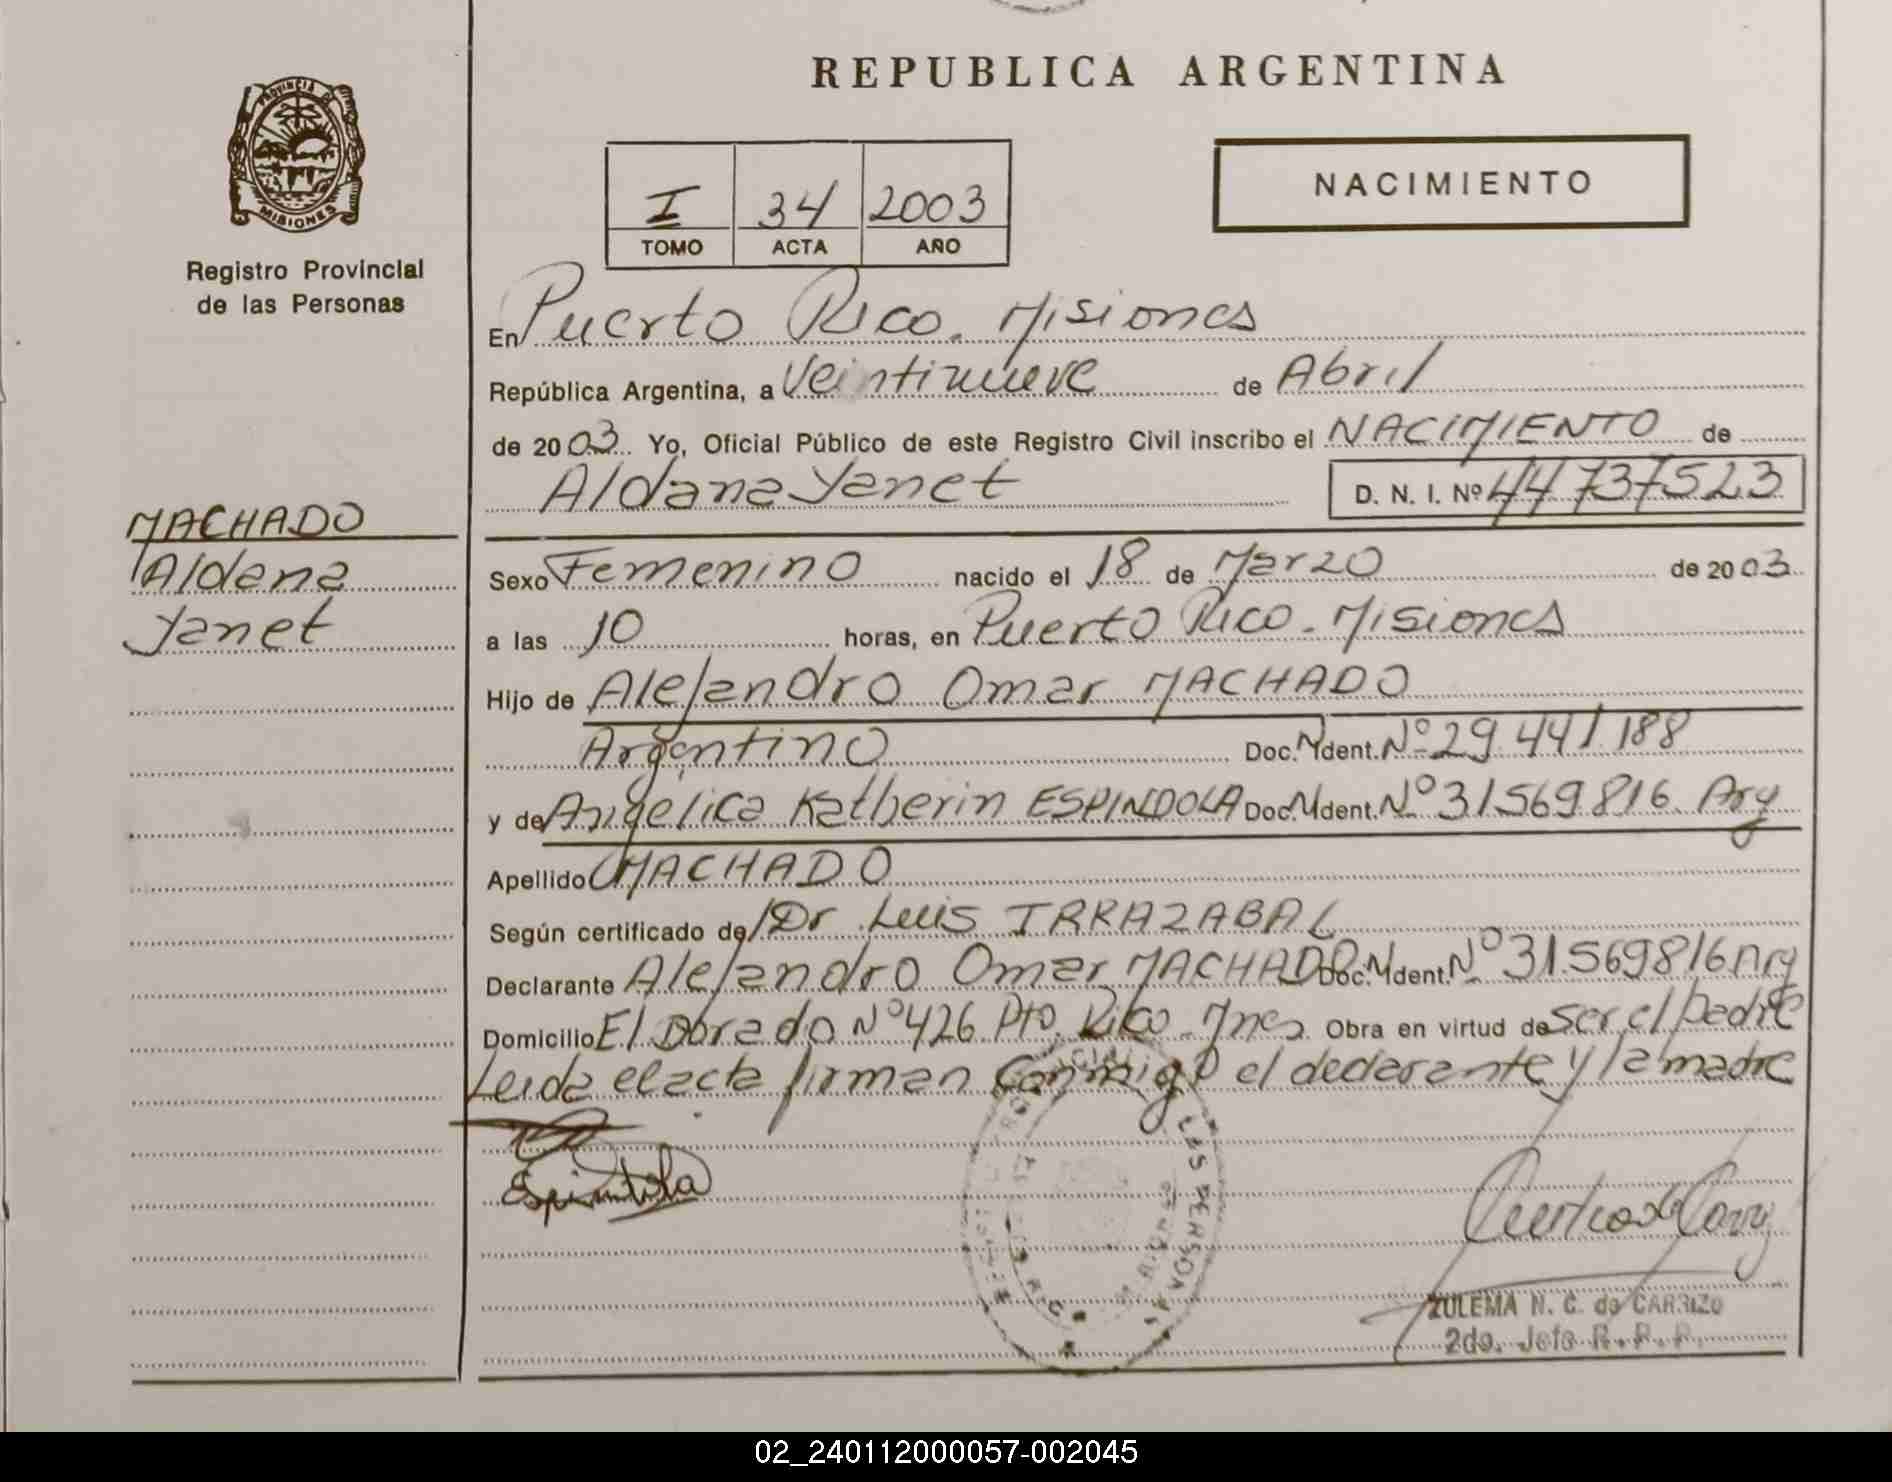 REPUBLICA ARGENTINA
PROVINCIA DE
MISIONES
Registro Provincial
de las Personas
I 34 2003
TOMO ACTA AÑO
NACIMIENTO
En Puerto Rico. Misiones
República Argentina, a Veintinueve de Abril
de 2003 Yo, Oficial Público de este Registro Civil inscribo el NACIMIENTO de
Aldana Yanet D. N. I. Nº 44737523
MACHADO
Aldana
Yanet
Sexo Femenino nacido el 18 de Marzo de 2003
a las 10 horas, en Puerto Rico. Misiones
Hijo de Alejandro Omar MACHADO
Argentino Doc. Ident. Nº 29.441.188
y de Angelica Katherin ESPINDOLA Doc. Ident. Nº 31569816 Arg
Apellido MACHADO
Según certificado de Dr Luis IRRAZABAL
Declarante Alejandro Omar MACHADO Doc. Ident. Nº 31.569816 Arg
Domicilio El Dorado Nº 426 Pto. Rico. Mnes Obra en virtud de ser el padre
Leida el acta firman conmigo el declarante y la madre
Espindola
ZULEMA N. C. de CARRIZO
2do. Jefe R. P. P.
02_240112000057-002045